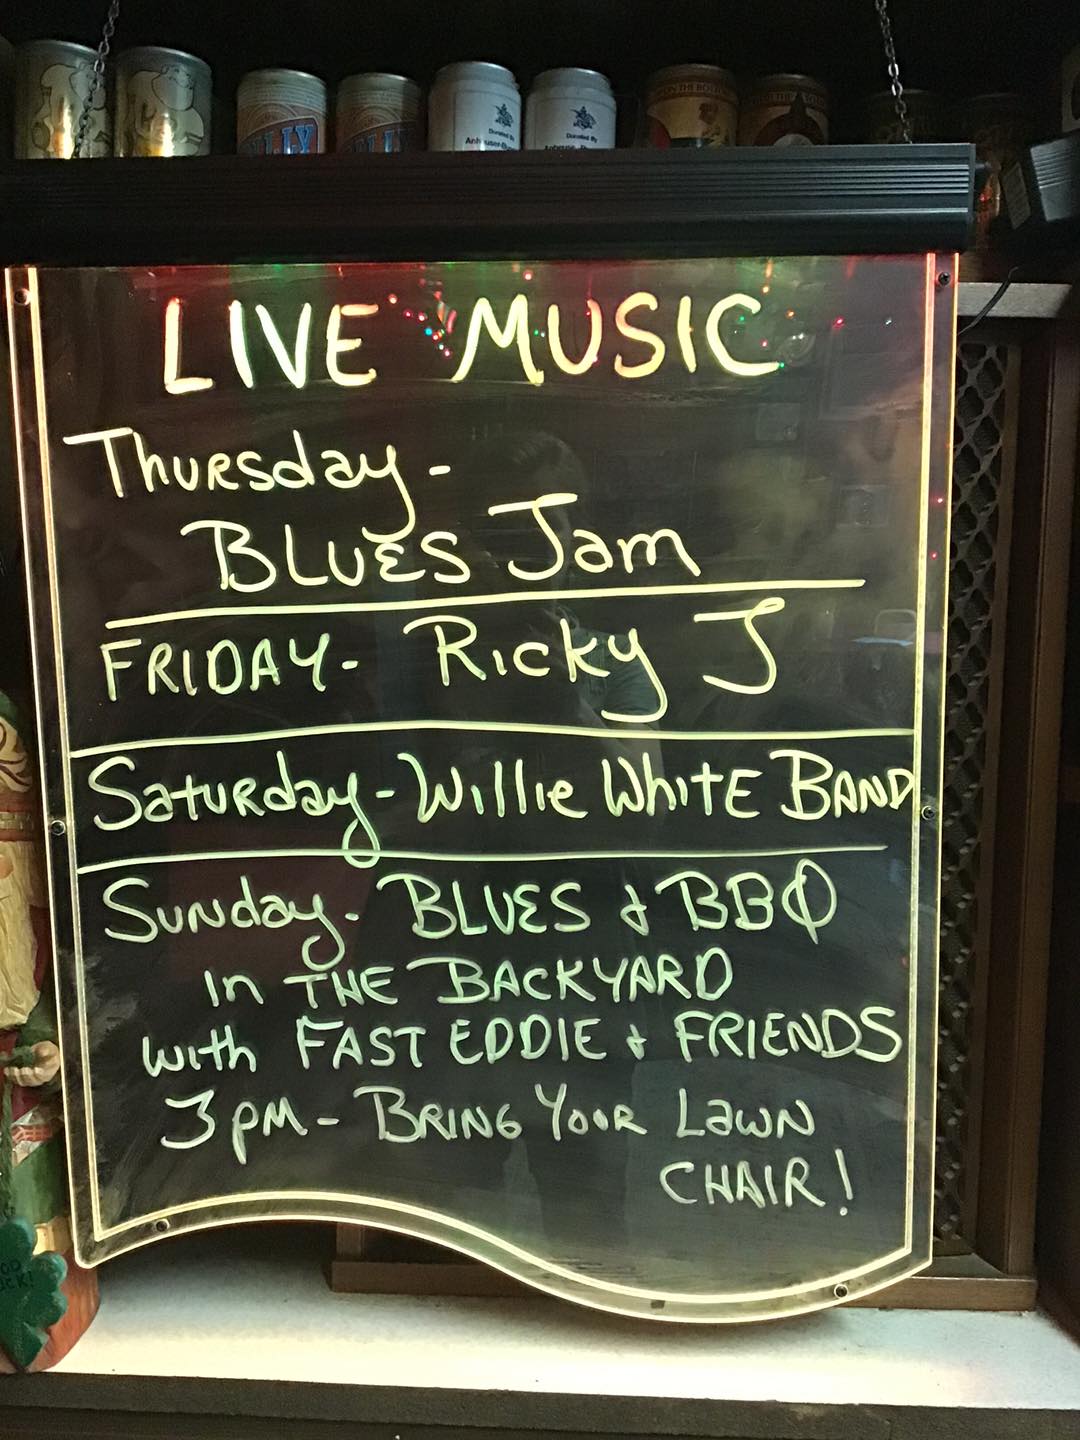 Donated By
Anheuser-B
Donated By
LIVE MUSIC
Thursday-
BLUES Jam
FRIDAY- Ricky J
Saturday-Willie White BAND
Sunday- BLUES & BBQ
In THE BACKYARD
with FAST EDDIE & FRIENDS
3pm- BRING YOUR Lawn
CHAIR!